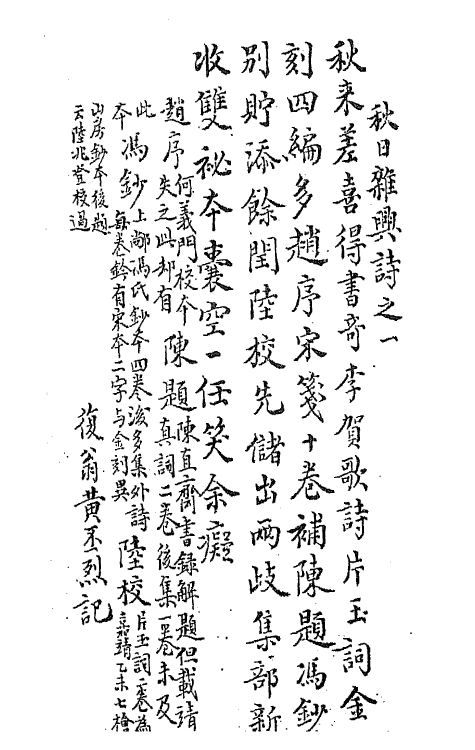 秋日雜興詩之一
秋来差喜得書奇李賀歌詩片玉詞金
刻四編多趙序宋箋十卷補陳題馮鈔
别貯添餘閏陸校先儲出兩歧集部新
收雙祕本囊空一任笑余癡
趙序何義門校本失之此却有陳題陳直齋書録解題但載清真詞二卷後集一卷未及
此本馮鈔上䣊馮氏鈔本四卷後多集外詩每卷鈐有宋本二字与金刻異陸校片玉詞二卷為嘉靖乙未七檜
山房鈔本後題云陸兆登校過
復翁黄丕烈記